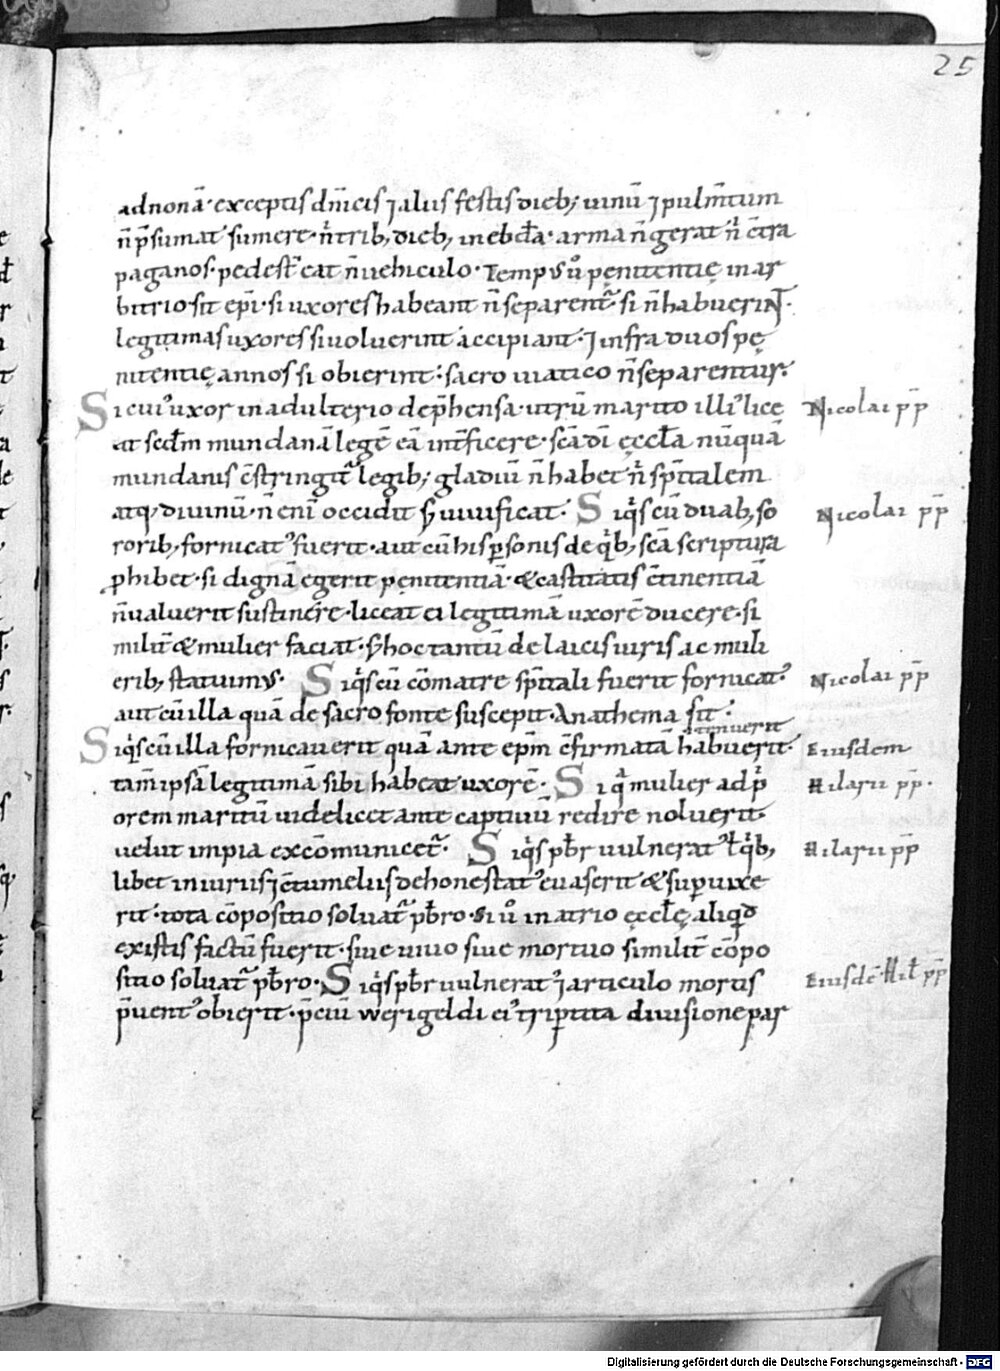 25
ad nonā· exceptis dn̄icis ⁊ aliis festis dieb; uinū ⁊ pulm̄tum
n̄ p̄sumat sumere· n̄ trib; dieb; in ebd̄a· arma n̄ gerat n̄ c̄tra
paganos· pedest̄ eat n̄ uehiculo· Temp̱ u̾o penitentię in ar
bitrio sit ep̄i· si uxores habeant n̄ separent᷑· si n̄ habuerint·
legitimas uxores si uoluerint accipiant· ⁊ infra duos pę
nitentię annos si obierint· sacro uiatico n̄ separentur·
Si cui᾽ uxor in adulterio dep̄hensa· utrū marito illi᾽ lice
at secd̄m mundanā legē eā int̄ficere· sc̄a dī ęccl̄a nūquā
mundanis c̄stringit᷑ legib; gladiū n̄ habet n̄ sp̄italem
atq; diuinū· n̄ enī occidit s; uiuificat· Siq̇s cū duab; so
Nicolai pp̄
rorib; fornicat᾽ fuerit· aut cū his ꝑsonis de q̇b; sc̄a scriptura
Nicolai pp̄
ꝓhibet· si dignā egerit penitentiā· & castitatis c̄tinentiā
n̄ ualuerit sustinere· liceat ei legitimā uxorē ducere· si
milit̄ & mulier faciat· s; hoc tantū de laicis uiris ac muli
erib; statuimus· Siq̇s cū cōmatre sp̄itali fuerit fornicat᾽
Nicolai pp̄
aut cū illa quā de sacro fonte suscepit· Anathema sit·
tenuerit
Siq̇s cū illa fornicauerit quā ante ep̄m c̄firmatā habuerit·
Eiusdem
tam̄ ipsā legitimā sibi habeat uxorē· Siqᵃ mulier ad pⁱ
Hilarii pp̄·
orem maritū uidelicet ante captiuū redire noluerit·
uelut impia excōmunicet᷑· Siq̇s pb̄r uulnerat᾽ ł q̇b;
Hilarii pp̄
libet iniuriis ⁊ c̄tumeliis dehonestat᾽ euaserit & suꝑuixe
rit· tota cōpositio soluat᷑ pb̄ro· Si u̾o in atrio ęccl̄ę aliqd̄
ex istis factū fuerit· siue uiuo siue mortuo similit̄ cōpo
sitio soluat᷑ pb̄ro· Siq̇s pb̄r uulnerat᾽ ⁊ articulo mortis
Eiusdē Hil pp̄
p̄uent᾽ obierit· p̄ciū werigeldi ei᾽ triꝑtita diuisione par
Digitalisierung gefördert durch die Deutsche Forschungsgemeinschaft - DFG